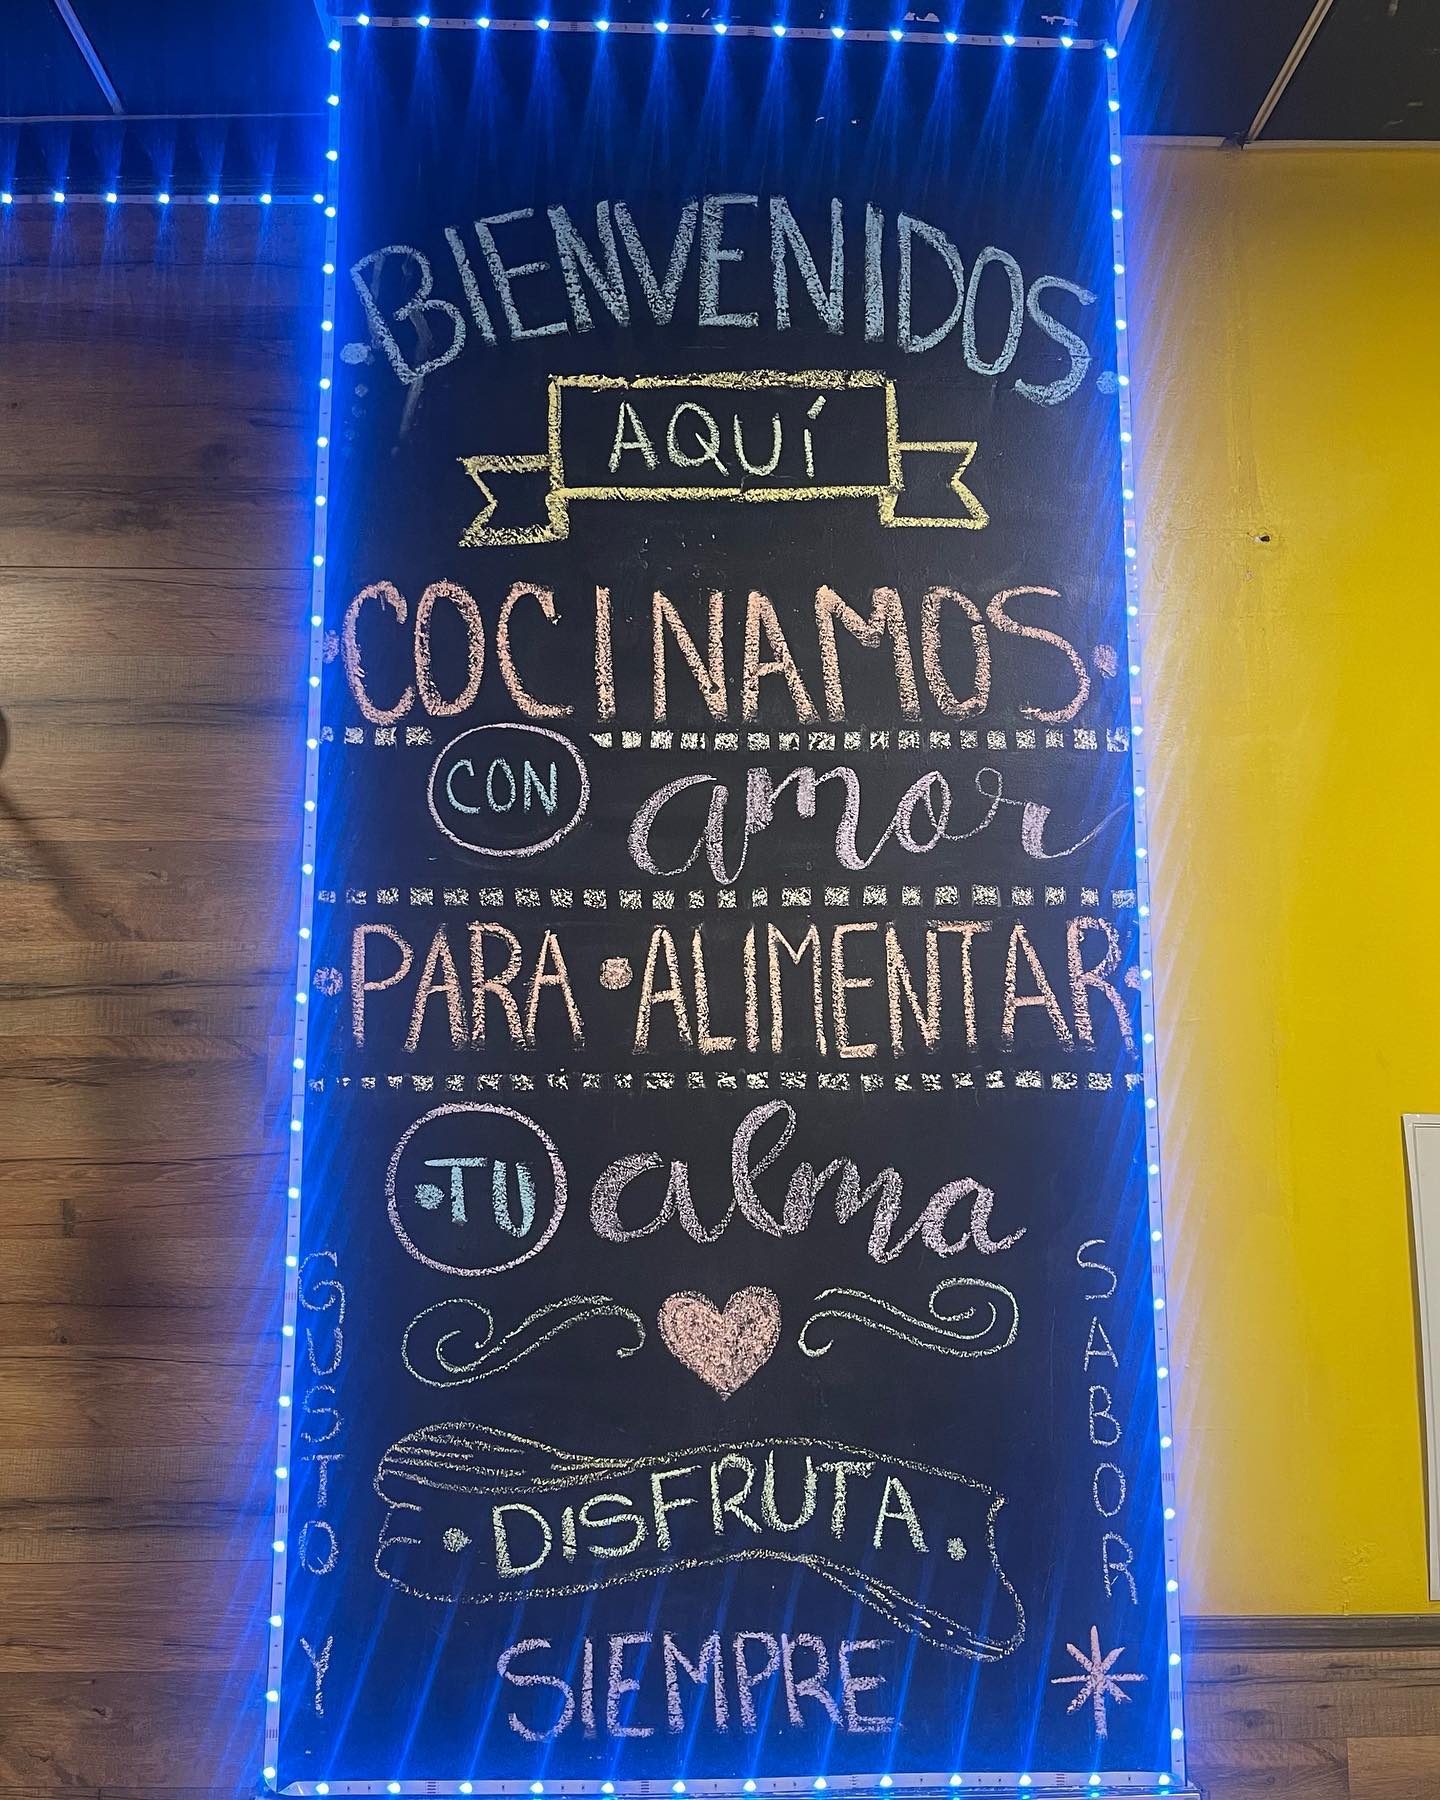 BIENVENIDOS
AQUÍ
COCINAMOS
CON amor
PARA ALIMENTAR
TU alma
DISFRUTA
SIEMPRE
GUSTO Y
SABOR